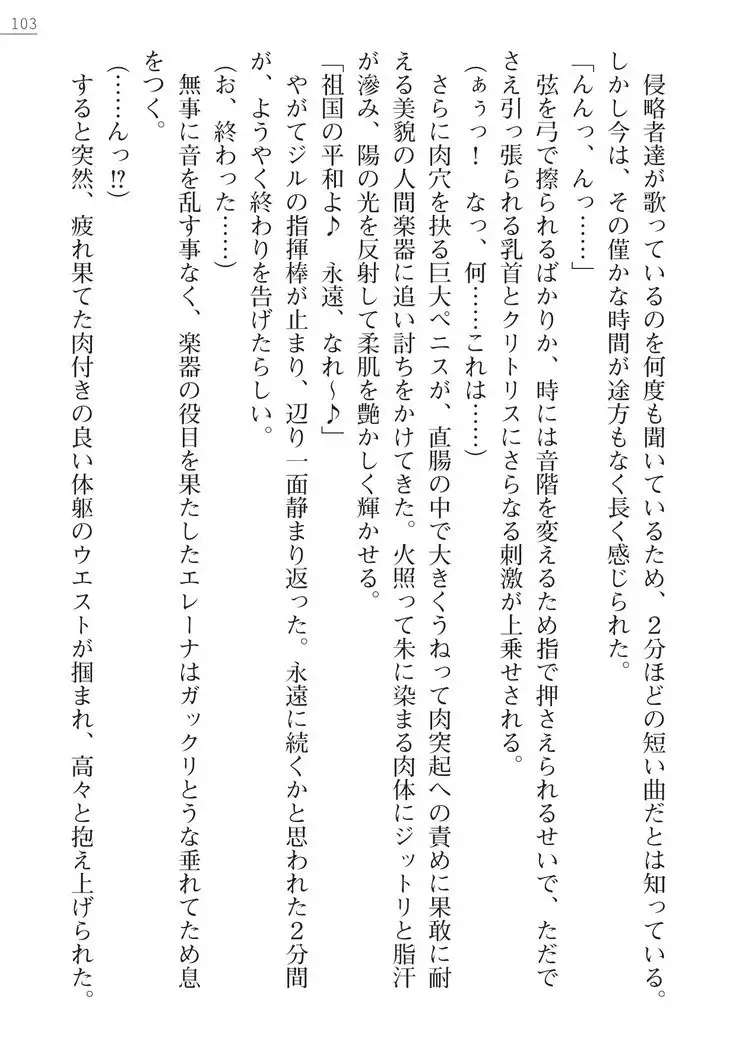 103
侵略者達が歌っているのを何度も聞いているため、２分ほどの短い曲だとは知っている。
しかし今は、その僅かな時間が途方もなく長く感じられた。
「んんっ、んっ……」
弦を弓で擦られるばかりか、時には音階を変えるため指で押さえられるせいで、ただで
さえ引っ張られる乳首とクリトリスにさらなる刺激が上乗せされる。
(ぁぅっ！　なっ、何……これは……)
さらに肉穴を抉る巨大ペニスが、直腸の中で大きくうねって肉突起への責めに果敢に耐
える美貌の人間楽器に追い討ちをかけてきた。火照って朱に染まる肉体にジットリと脂汗
が滲み、陽の光を反射して柔肌を艶かしく輝かせる。
「祖国の平和よ♪　永遠、なれ～♪」
やがてジルの指揮棒が止まり、辺り一面静まり返った。永遠に続くかと思われた２分間
が、ようやく終わりを告げたらしい。
(お、終わった……)
無事に音を乱す事なく、楽器の役目を果たしたエレーナはガックリとうな垂れてため息
をつく。
(……んっ!?)
すると突然、疲れ果てた肉付きの良い体躯のウエストが掴まれ、高々と抱え上げられた。